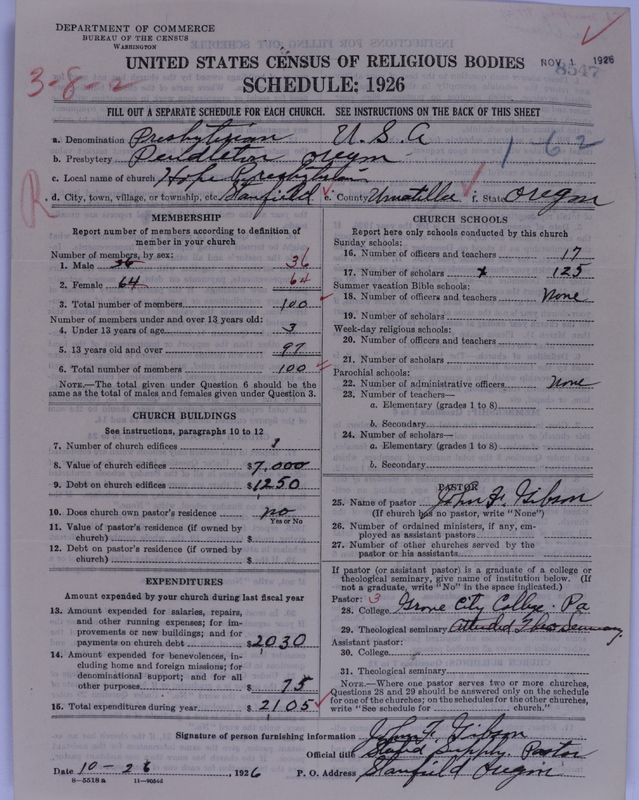 DEPARTMENT OF COMMERCE
BUREAU OF THE CENSUS
WASHINGTON
UNITED STATES CENSUS OF RELIGIOUS BODIES
NOV 1 1926
8547
SCHEDULE: 1926
3-8-2
FILL OUT A SEPARATE SCHEDULE FOR EACH CHURCH. SEE INSTRUCTIONS ON THE BACK OF THIS SHEET
a. Denomination Presbyterian U.S.A
b. Presbytery Pendleton Oregon
1-62
c. Local name of church Hope Presbyterian
R
d. City, town, village, or township, etc. Stanfield e. County Umatilla f. State Oregon
MEMBERSHIP
Report number of members according to definition of member in your church
Number of members, by sex:
1. Male 36 36
2. Female 64 64
3. Total number of members 100
Number of members under and over 13 years old:
4. Under 13 years of age 3
5. 13 years old and over 97
6. Total number of members 100
NOTE.—The total given under Question 6 should be the same as the total of males and females given under Question 3.
CHURCH BUILDINGS
See instructions, paragraphs 10 to 12
7. Number of church edifices 1
8. Value of church edifices $7,000
9. Debt on church edifices $1250
10. Does church own pastor's residence no
Yes or No
11. Value of pastor's residence (if owned by church) $
12. Debt on pastor's residence (if owned by church) $
EXPENDITURES
Amount expended by your church during last fiscal year
13. Amount expended for salaries, repairs, and other running expenses; for improvements or new buildings; and for payments on church debt $2030
14. Amount expended for benevolences, including home and foreign missions; for denominational support; and for all other purposes $75
15. Total expenditures during year $2105
CHURCH SCHOOLS
Report here only schools conducted by this church
Sunday schools:
16. Number of officers and teachers 17
17. Number of scholars x 125
Summer vacation Bible schools:
18. Number of officers and teachers None
19. Number of scholars
Week-day religious schools:
20. Number of officers and teachers
21. Number of scholars
Parochial schools:
22. Number of administrative officers none
23. Number of teachers—
a. Elementary (grades 1 to 8)
b. Secondary
24. Number of scholars—
a. Elementary (grades 1 to 8)
b. Secondary
PASTOR
25. Name of pastor John F. Gibson
(If church has no pastor, write "None")
26. Number of ordained ministers, if any, employed as assistant pastors
27. Number of other churches served by the pastor or his assistants
If pastor (or assistant pastor) is a graduate of a college or theological seminary, give name of institution below. (If not a graduate, write "No" in the space indicated.)
Pastor: 3
28. College Grove City College. Pa
29. Theological seminary attended Theo Seminary
Assistant pastor:
30. College
31. Theological seminary
NOTE.—Where one pastor serves two or more churches, Questions 28 and 29 should be answered only on the schedule for one of the churches; on the schedules for the other churches, write "See schedule for church."
Signature of person furnishing information John F. Gibson
Official title Stated Supply Pastor
Date 10-26, 1926 P. O. Address Stanfield Oregon
8-5518 a